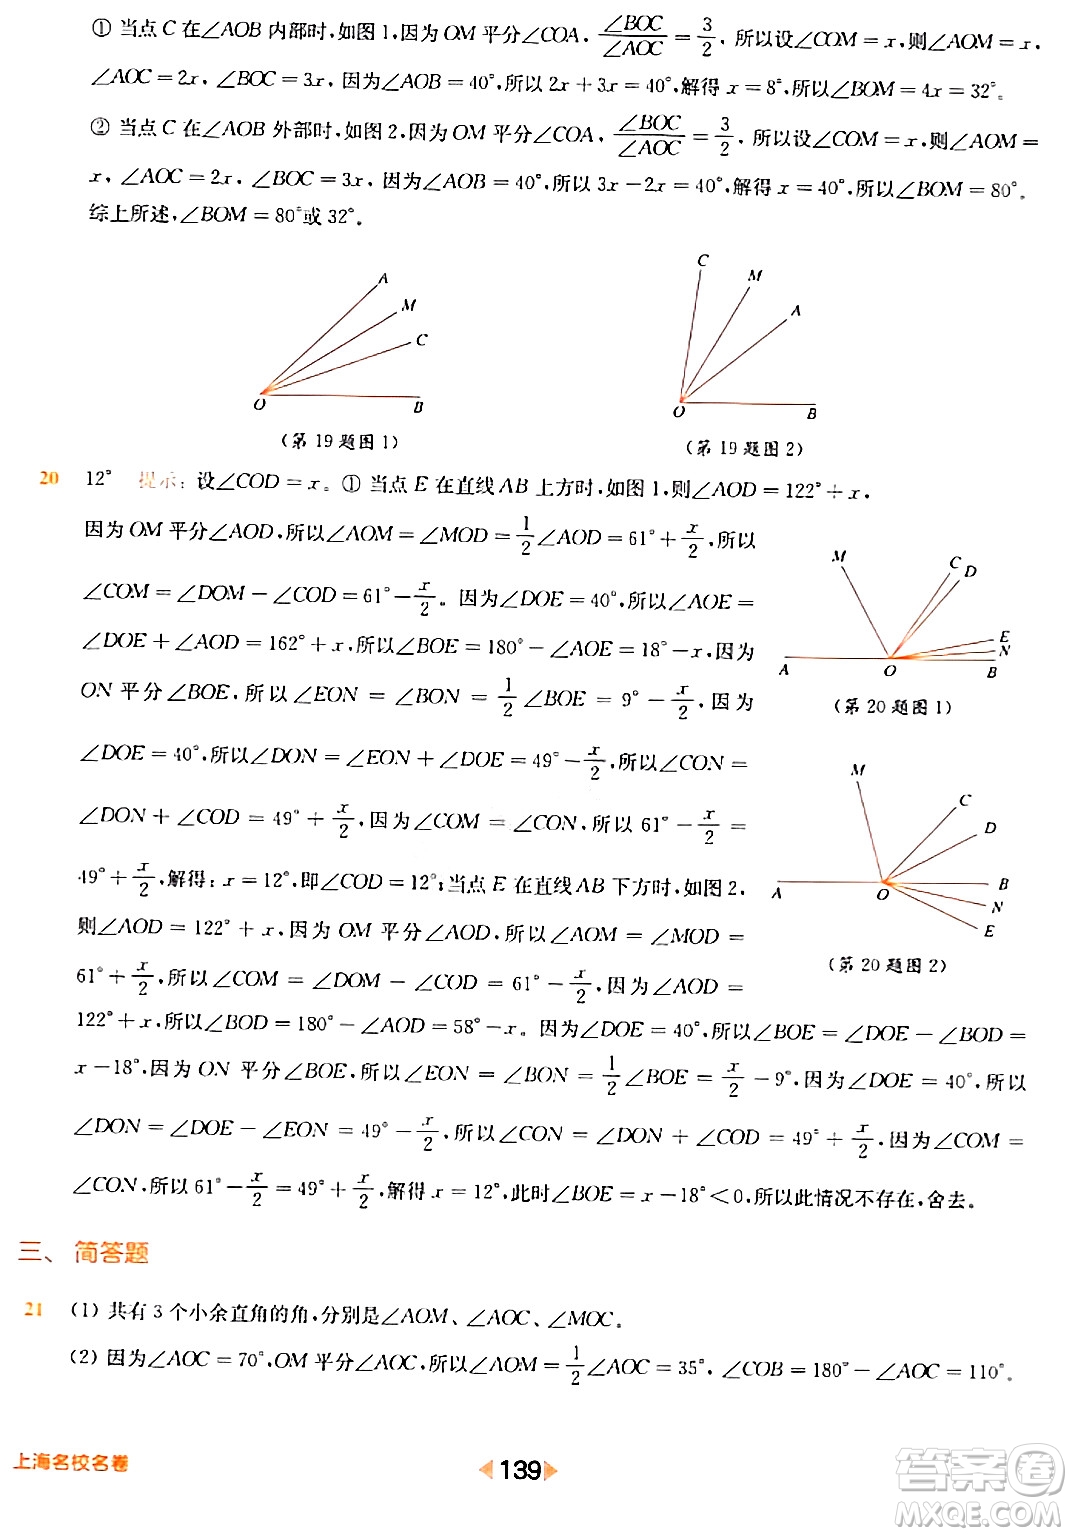 ① 当点 C 在∠AOB 内部时,如图 1,因为 OM 平分∠COA, ∠BOC/∠AOC = 3/2, 所以设∠COM = x,则∠AOM = x,
∠AOC = 2x, ∠BOC = 3x, 因为∠AOB = 40°,所以 2x + 3x = 40°,解得 x = 8°,所以∠BOM = 4x = 32°。
② 当点 C 在∠AOB 外部时,如图 2,因为 OM 平分∠COA, ∠BOC/∠AOC = 3/2, 所以设∠COM = x,则∠AOM =
x, ∠AOC = 2x, ∠BOC = 3x, 因为∠AOB = 40°,所以 3x − 2x = 40°,解得 x = 40°,所以∠BOM = 80°。
综上所述,∠BOM = 80°或 32°。
A
M
C
O
B
(第 19 题图 1)
C
M
A
O
B
(第 19 题图 2)
20 12° 提示: 设∠COD = x。① 当点 E 在直线 AB 上方时,如图 1,则∠AOD = 122° + x,
因为 OM 平分∠AOD,所以∠AOM = ∠MOD = 1/2∠AOD = 61° + x/2,所以
∠COM = ∠DOM − ∠COD = 61° − x/2。因为∠DOE = 40°,所以∠AOE =
∠DOE + ∠AOD = 162° + x,所以∠BOE = 180° − ∠AOE = 18° − x,因为
ON 平分∠BOE, 所以∠EON = ∠BON = 1/2∠BOE = 9° − x/2, 因为
∠DOE = 40°,所以∠DON = ∠EON + ∠DOE = 49° − x/2,所以∠CON =
∠DON + ∠COD = 49° + x/2,因为∠COM = ∠CON,所以 61° − x/2 =
49° + x/2,解得: x = 12°,即∠COD = 12°;当点 E 在直线 AB 下方时,如图 2,
则∠AOD = 122° + x, 因为 OM 平分∠AOD, 所以∠AOM = ∠MOD =
61° + x/2, 所以∠COM = ∠DOM − ∠COD = 61° − x/2, 因为∠AOD =
122° + x,所以∠BOD = 180° − ∠AOD = 58° − x。因为∠DOE = 40°,所以∠BOE = ∠DOE − ∠BOD =
x − 18°, 因为 ON 平分∠BOE, 所以∠EON = ∠BON = 1/2∠BOE = x/2 − 9°, 因为∠DOE = 40°,所以
∠DON = ∠DOE − ∠EON = 49° − x/2, 所以∠CON = ∠DON + ∠COD = 49° + x/2, 因为∠COM =
∠CON,所以 61° − x/2 = 49° + x/2,解得 x = 12°,此时∠BOE = x − 18° < 0,所以此情况不存在,舍去。
M
C
D
E
N
A
O
B
(第 20 题图 1)
M
C
D
A
O
B
N
E
(第 20 题图 2)
三、 简答题
21 (1) 共有 3 个小余直角的角,分别是∠AOM、∠AOC、∠MOC。
(2) 因为∠AOC = 70°,OM 平分∠AOC,所以∠AOM = 1/2∠AOC = 35°, ∠COB = 180° − ∠AOC = 110°。
上海名校名卷
139
答案圈
MXQE.COM